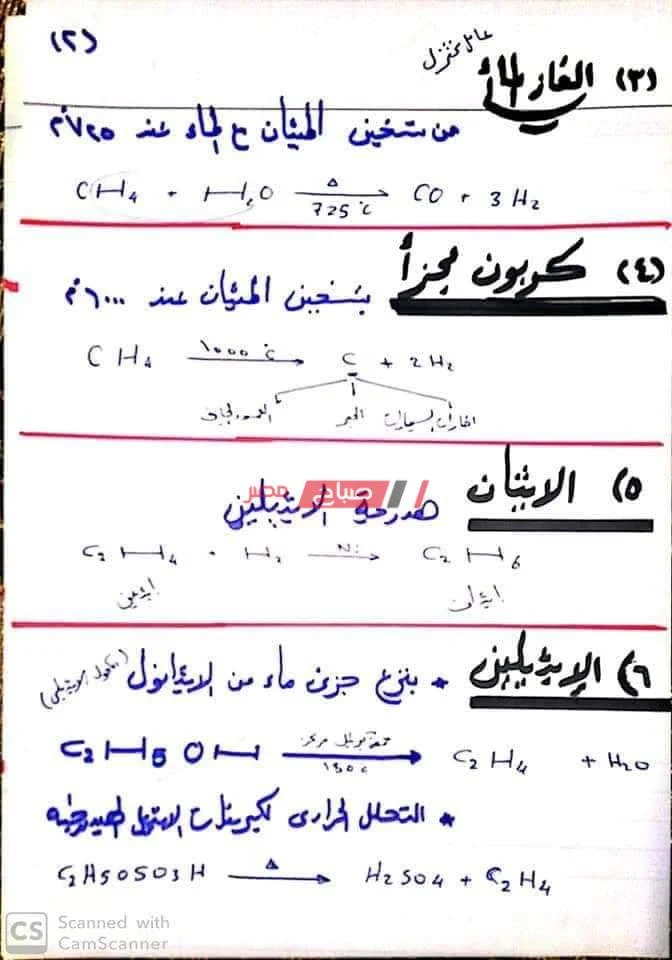 (٢)
(٣) الغاز المائى عامل مختزل
من تسخين الميثان مع الماء عند ٧٢٥°م
CH4 + H2O →Δ 725°c CO + 3H2
(٤) كربون مجزأ بتسخين الميثان عند ١٠٠٠°م
CH4 →1000°c C + 2H2
اطارات السيارات الحبر
صباح مصر
٥) الايثان هدرجة الايثيلين
C2H4 + H2 →Ni C2H6
ايثين ايثان
٦) الإيثيلين * بنزع جزئ ماء من الايثانول (الكحول الايثيلى)
C2H5OH →180c C2H4 + H2O
* التحلل الحرارى لكبريتات الايثيل الهيدروجينية
C2H5OSO3H →Δ H2SO4 + C2H4
CS Scanned with
CamScanner